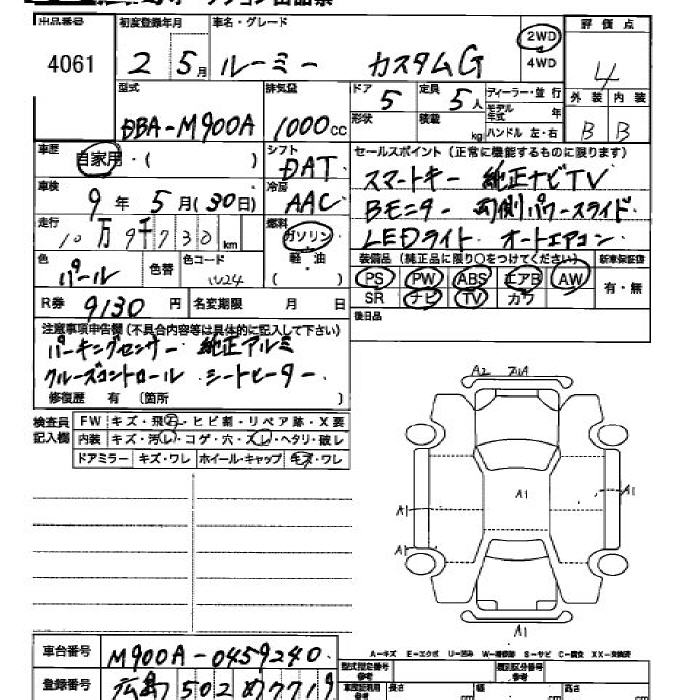 出品番号 初度登録年月 車名・グレード 評価点
4061 2 5月 ルーミー カスタムG 2WD 4WD 4
型式 排気量 ドア 定員 ディーラー・並行 外装 内装
DBA-M900A 1000cc 5 5人 モデル年式 年 B B
形状 積載 kg ハンドル 左・右
車歴 自家用・( ) シフト DAT セールスポイント(正常に機能するものに限ります)
車検 9年 5月(30日) 冷房 AAC スマートキー 純正ナビTV
走行 10万9千730km 燃料 ガソリン Bモニター 両側パワースライド
軽油 ( ) LEDライト オートエアコン
色 パール 色替 色コード W24 装備品(純正品に限り○をつけてください) 新車保証書
PS PW ABS エアB AW 有・無
SR ナビ TV カワ
R券 9130円 名変期限 月 日 後日品
注意事項申告欄(不具合内容等は具体的に記入して下さい)
パーキングセンサー 純正アルミ
クルーズコントロール シートヒーター
修復歴 有 (箇所 )
検査員記入欄 FW キズ・飛石・ヒビ割・リペア跡・X要
内装 キズ・汚レ・コゲ・穴・スレ・ヘタリ・破レ
ドアミラー キズ・ワレ ホイール・キャップ キズ・ワレ
A2
A1
A1 A1
A1
A1
車台番号 M900A-0459240
A-キズ E-エクボ U-凹み W-補修跡 S-サビ C-腐食 XX-交換済
型式指定番号 類別区分番号
登録番号 広島 502 ぬ7719
長さ cm 幅 cm 高さ